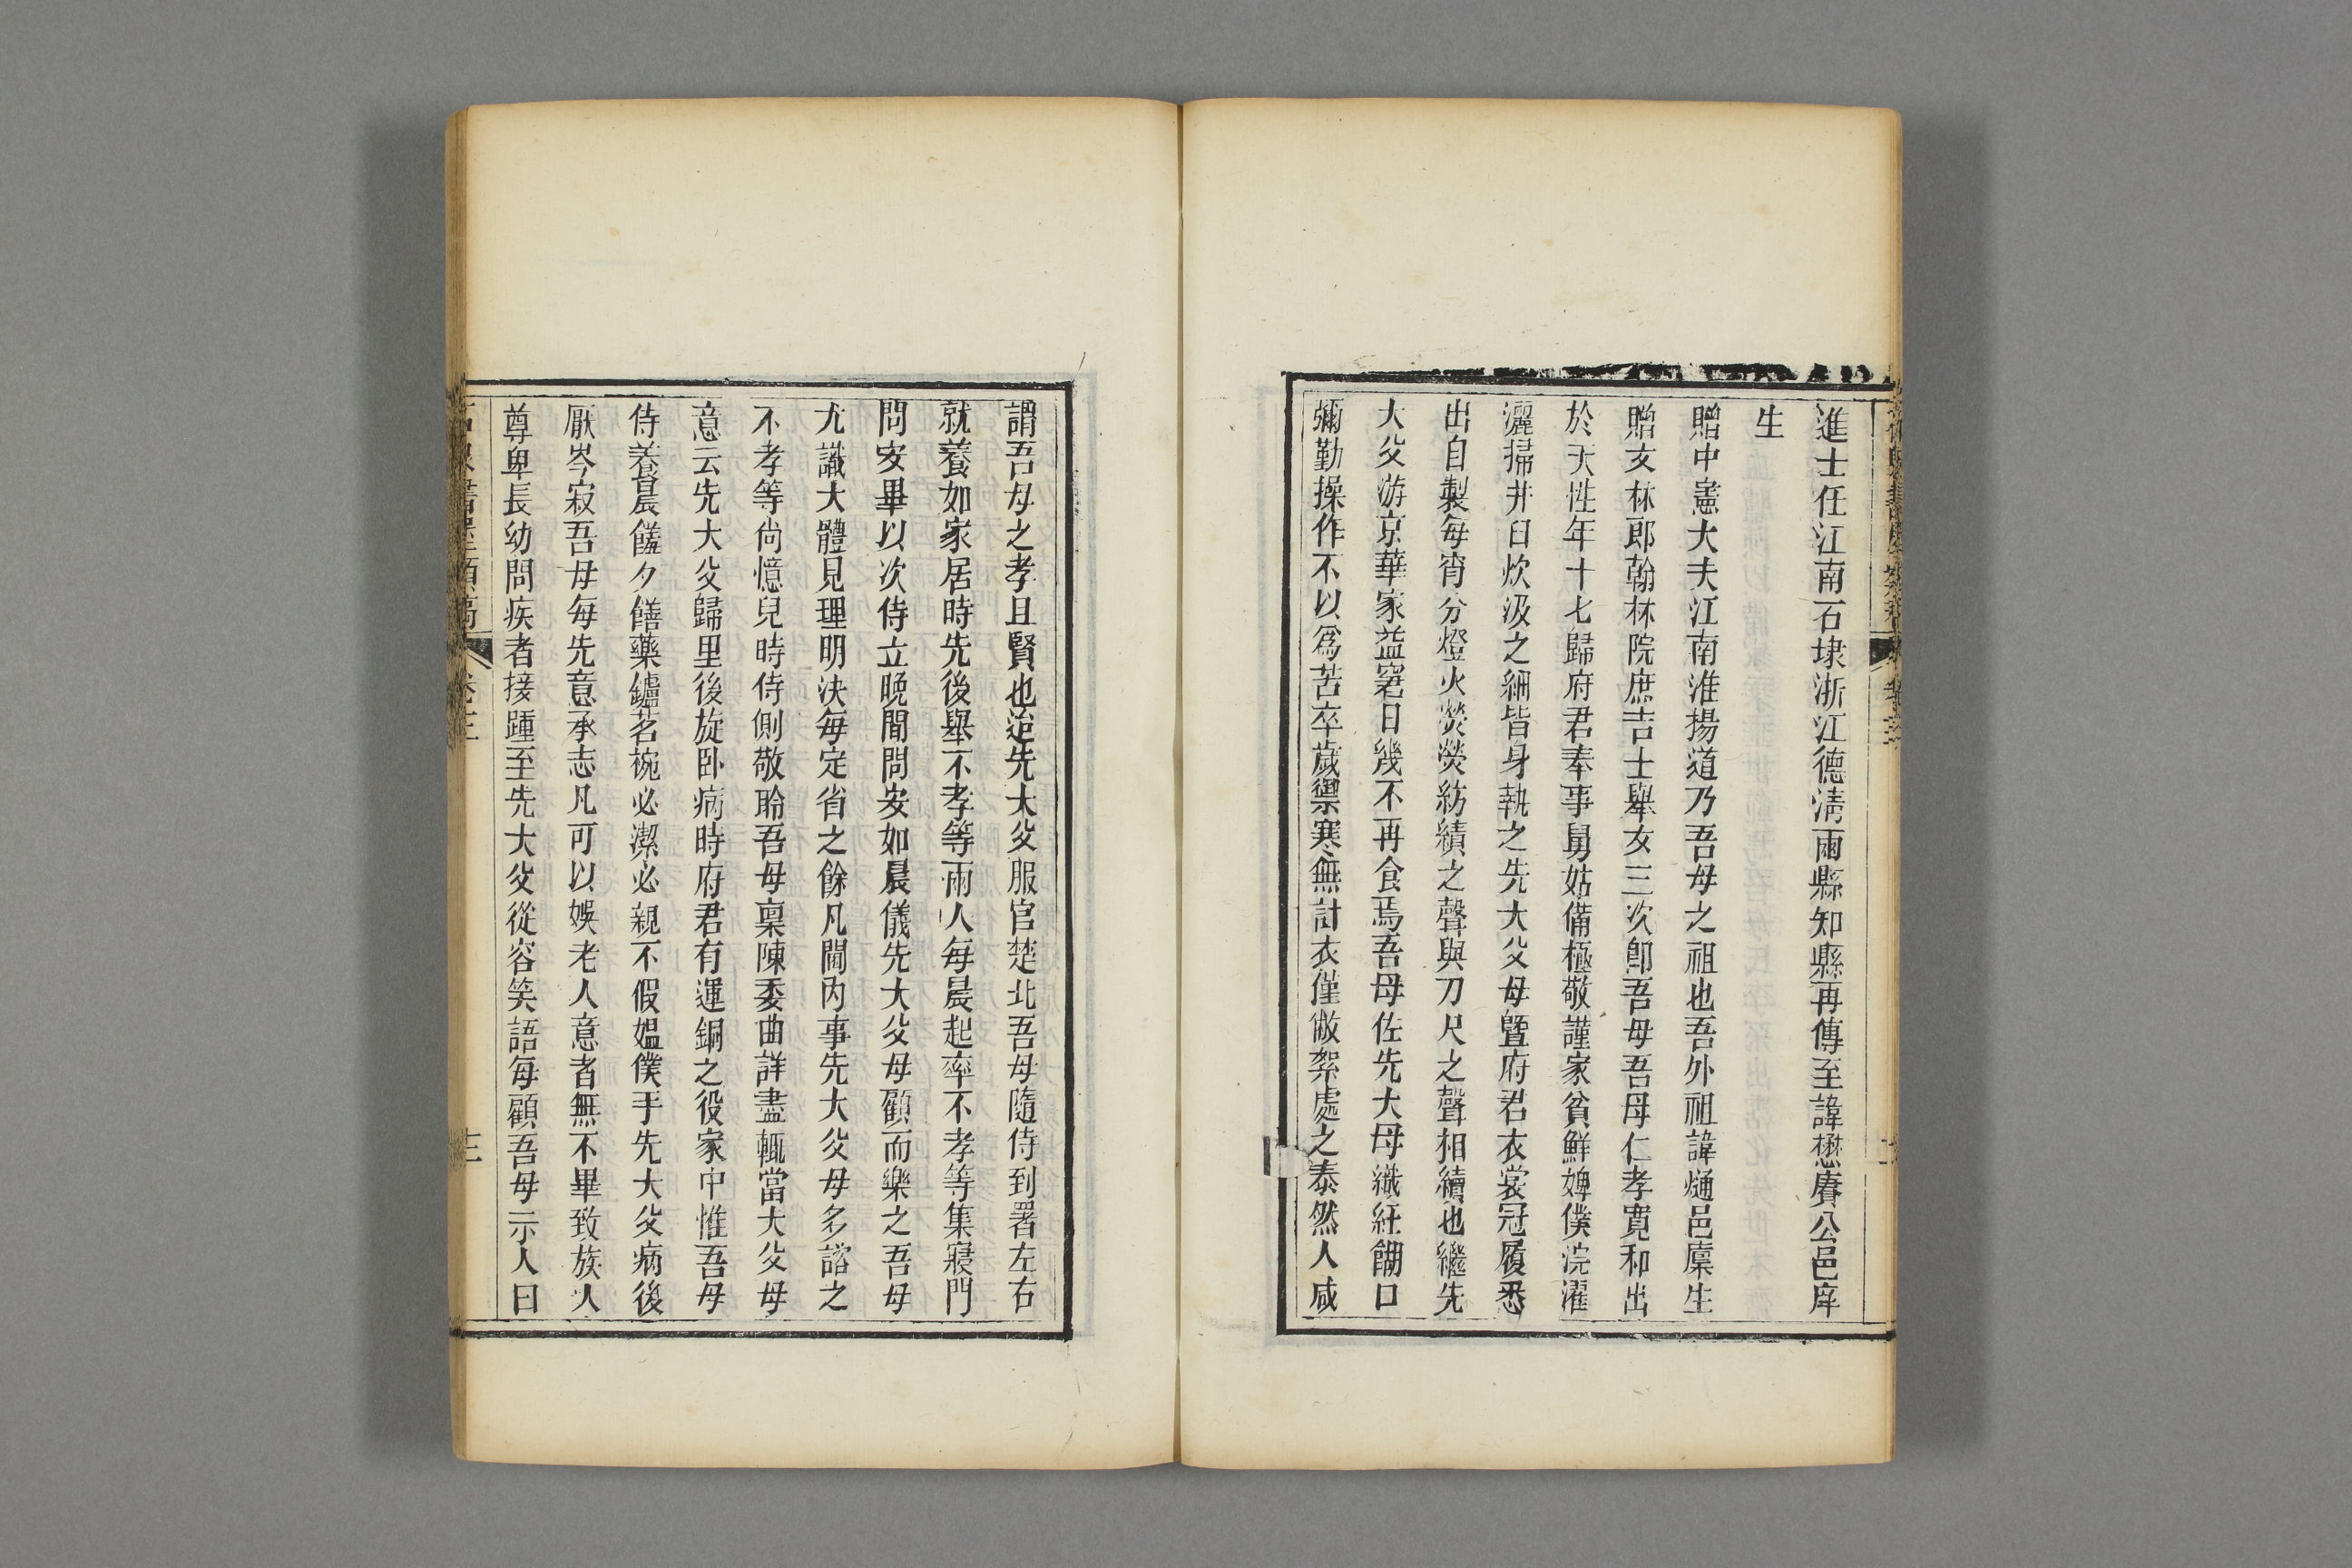 進士任江南石埭浙江德淸兩縣知縣再傳至諱懋賡公邑庠
生
贈中憲大夫江南淮揚道乃吾母之祖也吾外祖諱熥邑廩生
贈文林郎翰林院庶吉士舉女三次卽吾母吾母仁孝寬和出
於天性年十七歸府君奉事舅姑備極敬謹家貧鮮婢僕浣濯
灑掃井臼炊汲之細皆身執之先大父母曁府君衣裳冠履悉
出自製每宵分燈火熒熒紡績之聲與刀尺之聲相續也繼先
大父游京華家益窘日幾不再食焉吾母佐先大母織紝餬口
彌勤操作不以爲苦卒歲禦寒無計衣僅敝絮處之泰然人咸
謂吾母之孝且賢也迨先大父服官楚北吾母隨侍到署左右
就養如家居時先後舉不孝等兩人每晨起率不孝等集寢門
問安畢以次侍立晚間問安如晨儀先大父母顧而樂之吾母
尤識大體見理明決每定省之餘凡閫內事先大父母多諮之
不孝等尙憶兒時侍側敬聆吾母稟陳委曲詳盡輒當大父母
意云先大父歸里後旋卧病時府君有運銅之役家中惟吾母
侍養晨饈夕饍藥鑪茗椀必潔必親不假媼僕手先大父病後
厭岑寂吾母每先意承志凡可以娛老人意者無不畢致族人
尊卑長幼問疾者接踵至先大父從容笑語每顧吾母示人曰
卷三